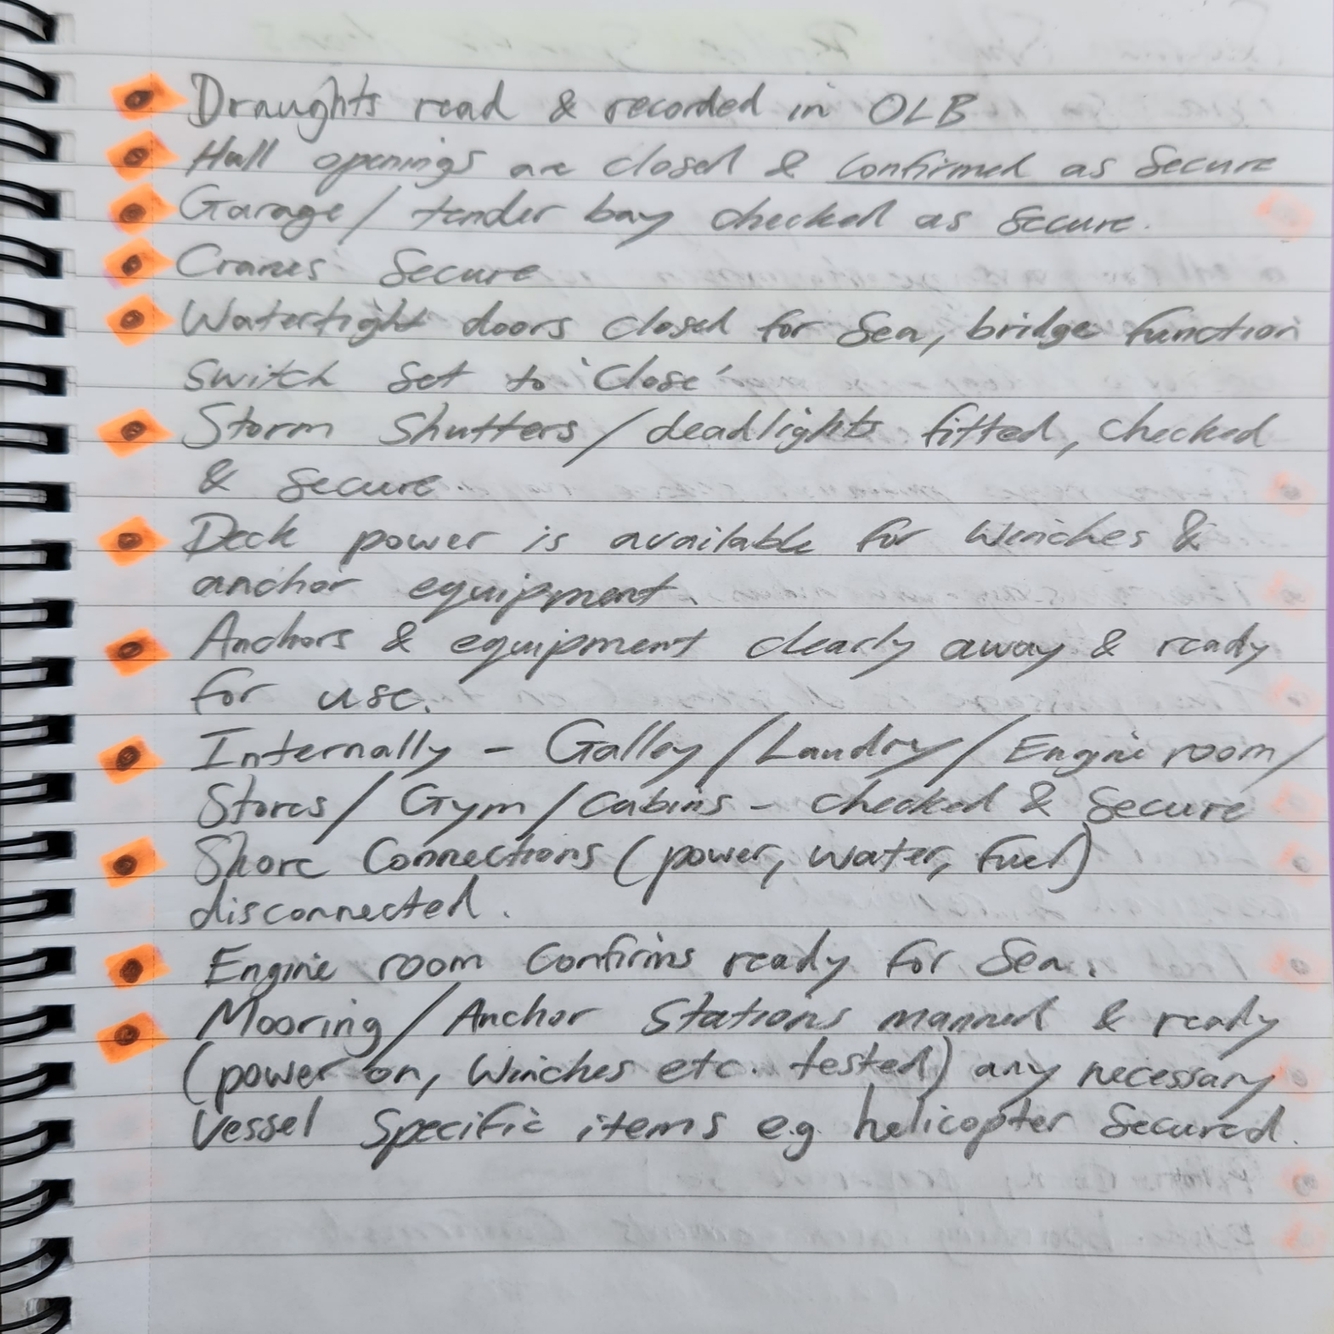 Draughts read & recorded in OLB
Hull openings are closed & confirmed as secure
Garage/tender bay checked as secure.
Cranes secure
Watertight doors closed for sea, bridge function
switch set to 'close'
Storm shutters/deadlights fitted, checked
& secure.
Deck power is available for winches &
anchor equipment.
Anchors & equipment clearly away & ready
for use.
Internally - Galley/Laundry/Engine room/
Stores/Gym/Cabins - checked & secure
Shore connections (power, water, fuel)
disconnected.
Engine room confirms ready for sea.
Mooring/Anchor stations manned & ready
(power on, winches etc. tested) any necessary
vessel specific items eg helicopter secured.